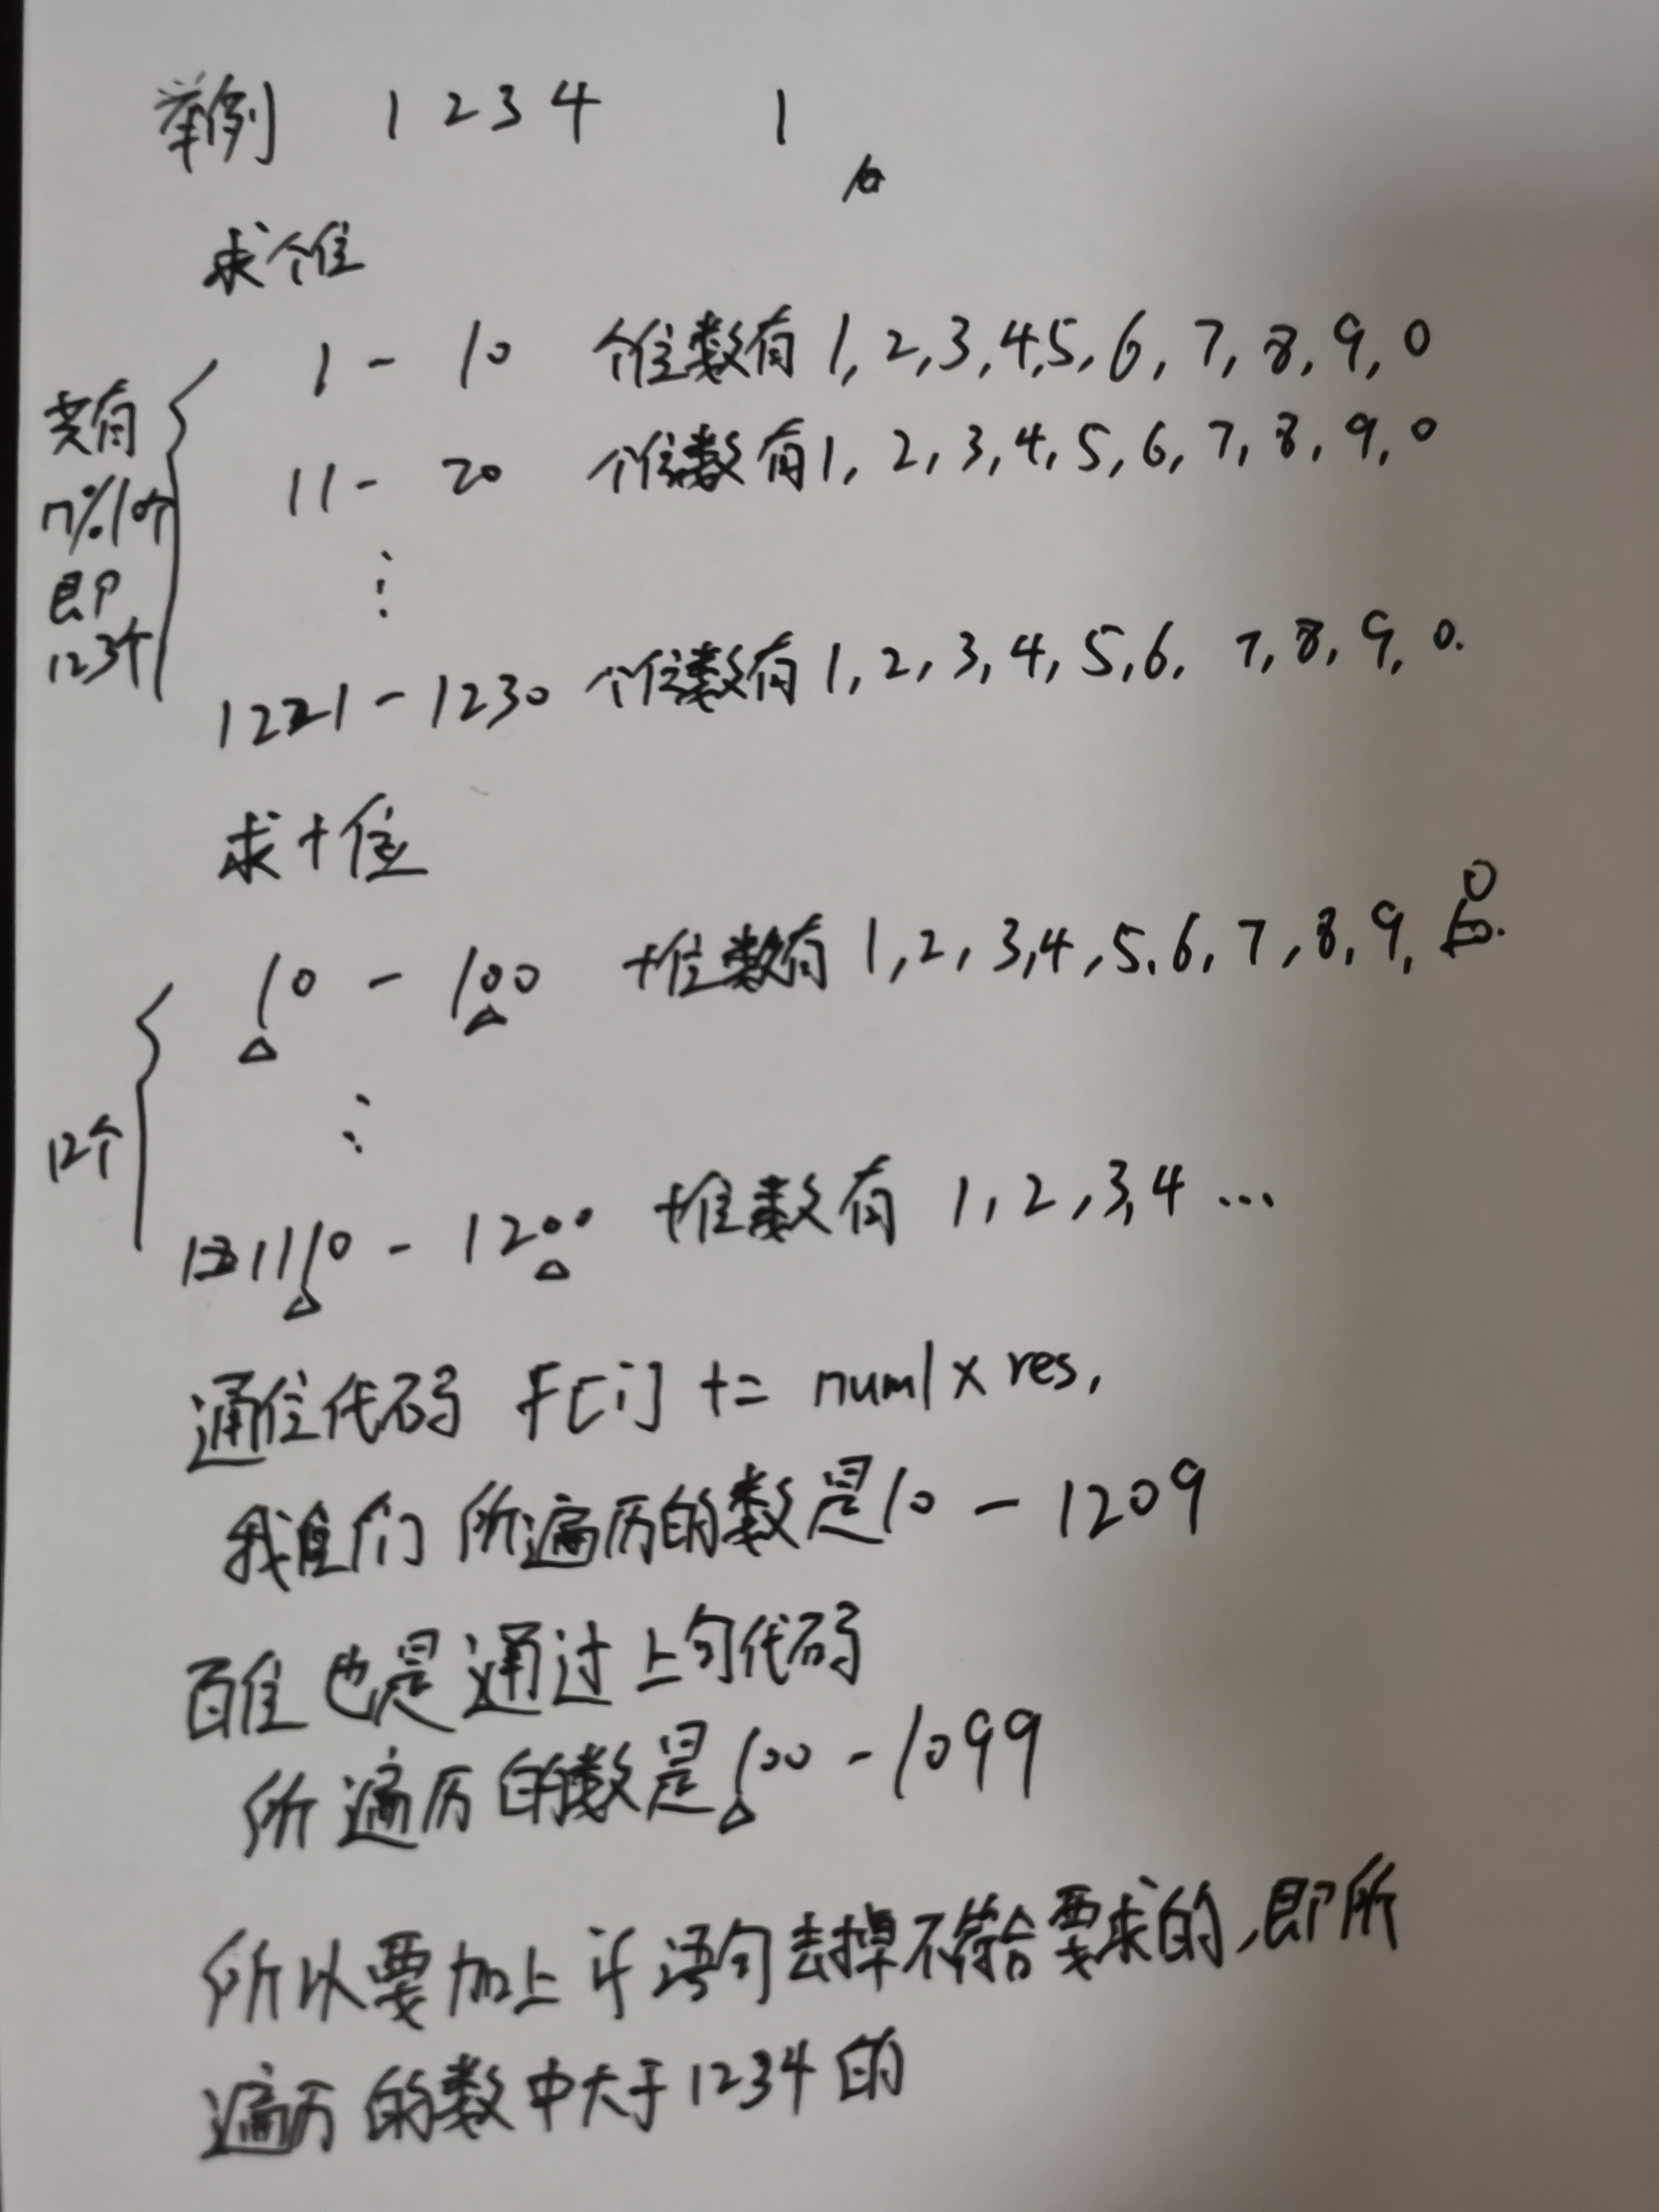 举例 1 2 3 4 1
求个位
1 - 10 个位数有 1, 2, 3, 4, 5, 6, 7, 8, 9, 0
11 - 20 个位数有 1, 2, 3, 4, 5, 6, 7, 8, 9, 0
⋮
1221 - 1230 个位数有 1, 2, 3, 4, 5, 6, 7, 8, 9, 0.
共有
n%10个
即
123个
求十位
10 - 100 十位数有 1, 2, 3, 4, 5, 6, 7, 8, 9, 0
⋮
12个
1110 - 1200 十位数有 1, 2, 3, 4 ...
通过代码 F[i] += num1 × res,
我们 所遍历的数是10 - 1209
百位也是通过上句代码
所遍历的数是100 - 1099
所以要加上if语句去掉不符合要求的,即所
遍历的数中大于1234的